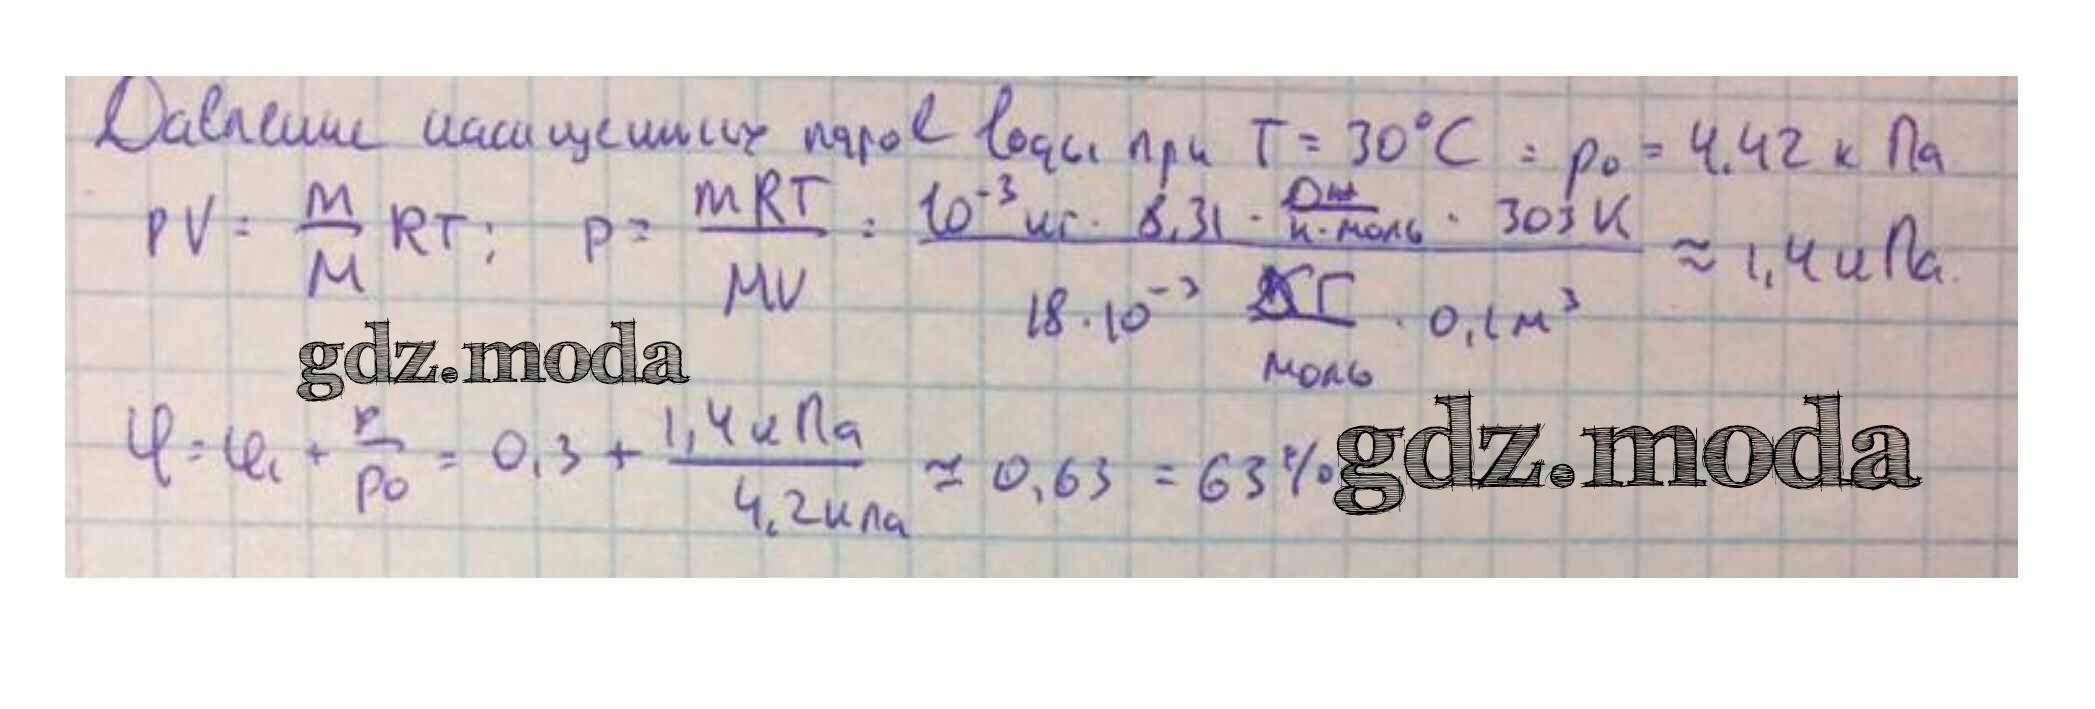 Давление насыщенных паров воды при T = 30°C : p₀ = 4.42 кПа
PV = m/M RT; p = mRT/MV = 10⁻³ кг · 8,31 · Дж/К·моль · 303 К / 18·10⁻³ кг/моль · 0,1 м³ ≈ 1,4 кПа.
gdz.moda
φ = φ₁ + p/p₀ = 0,3 + 1,4 кПа/4,2 кПа ≈ 0,63 = 63%
gdz.moda